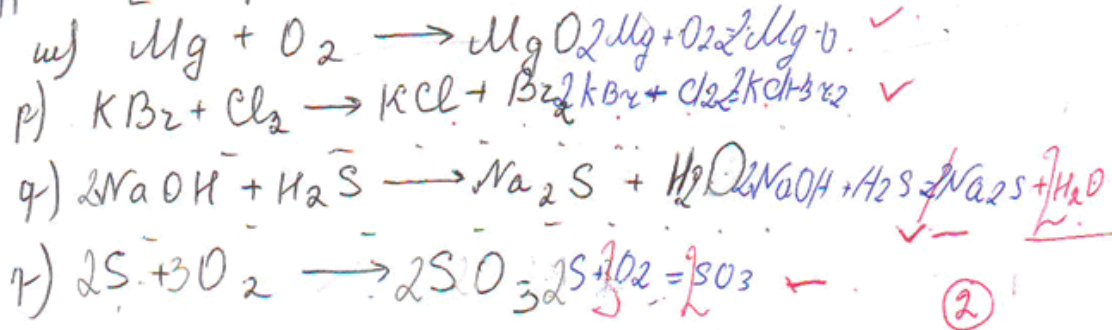 ш) Mg + O2 → MgO 2Mg+O2=2MgO. ✓
р) KBr + Cl2 → KCl + Br2 2KBr + Cl2=2KCl+Br2 ✓
q) 2NaOH + H2S → Na2S + H2O 2NaOH + H2S = 2Na2S + 2H2O ✓—
r) 2S + 3O2 → 2SO3 2S + 3O2 = 2SO3 — 2